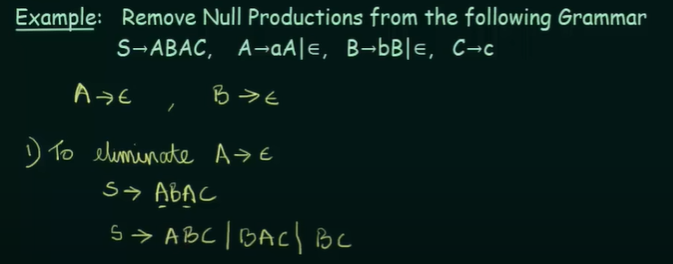 Example: Remove Null Productions from the following Grammar
S→ABAC, A→aA|∈, B→bB|∈, C→c
A→∈ , B→∈
1) To eliminate A→∈
S→ ABAC
S→ ABC | BAC | BC